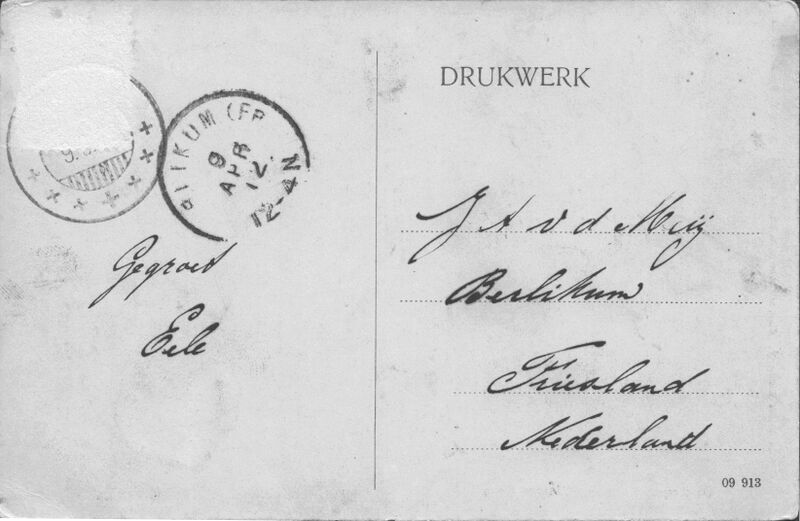 DRUKWERK
9
APR
12
12-4N
Gegroet
Eele
J A v d Meij
Berlikum
Friesland
Nederland
09 913